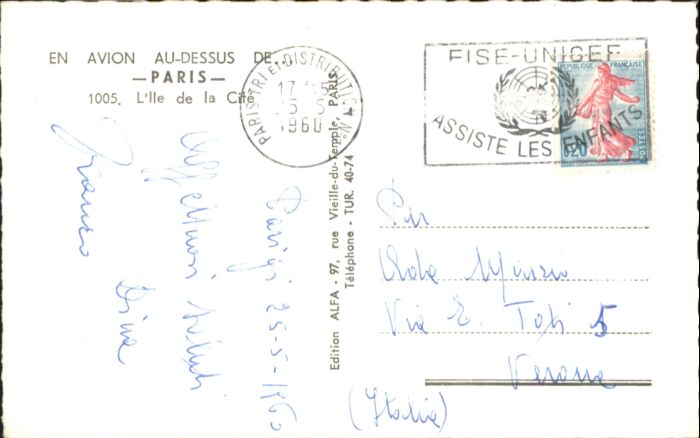 EN AVION AU-DESSUS DE...
—PARIS—
1005. L'Ile de la Cité
PARIS TRI ET DISTRIBUTION
17
1960
FISE-UNICEF
ASSISTE LES ENFANTS
REPUBLIQUE FRANÇAISE
0,20
POSTES
Edition ALFA - 97, rue Vieille-du-Temple, PARIS
Téléphone - TUR. 40-74
Parigi 25-5-1960
Affettuosi saluti
Franco Dina
Ada
Via E. Toti 5
Verona
(Italia)